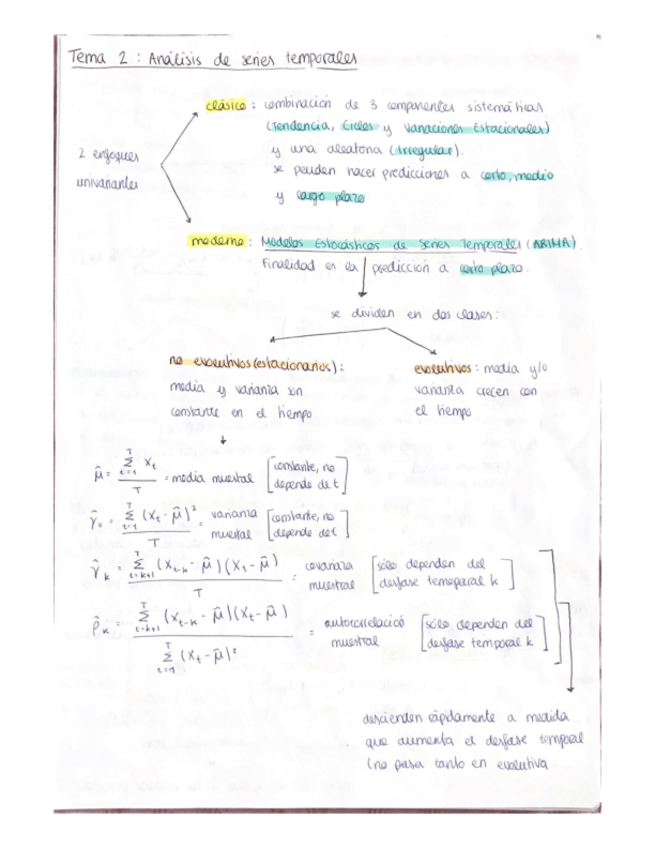 Tema 2 : Análisis de series temporales
2 enfoques
univariantes
clásico : combinación de 3 componentes sistemáticas
(tendencia, Ciclos y variaciones Estacionales)
y una aleatoria (Irregular).
se pueden hacer predicciones a corto, medio
y largo plazo
moderno : Modelos Estocásticos de Series Temporales (ARIMA).
Finalidad es la predicción a corto plazo.
se dividen en dos clases:
no evolutivos (estacionarios) :
media y varianza son
constante en el tiempo
evolutivos : media y/o
varianza crecen con
el tiempo
μ̂ = Σ_{t=1}^{T} X_t / T = media muestral [constante, no depende de t]
γ̂₀ = Σ_{t=1}^{T} (X_t - μ̂)² / T = varianza muestral [constante, no depende de t]
γ̂_k = Σ_{t=k+1}^{T} (X_{t-k} - μ̂)(X_t - μ̂) / T = covarianza muestral [sólo dependen del desfase temeparal k]
ρ̂_k = Σ_{t=k+1}^{T} (X_{t-k} - μ̂)(X_t - μ̂) / Σ_{t=1}^{T} (X_t - μ̂)² = autocorrelació muestral [sólo dependen del desfase temporal k]
descienden rápidamente a medida
que aumenta el desfase temporal
(no pasa tanto en evolutiva